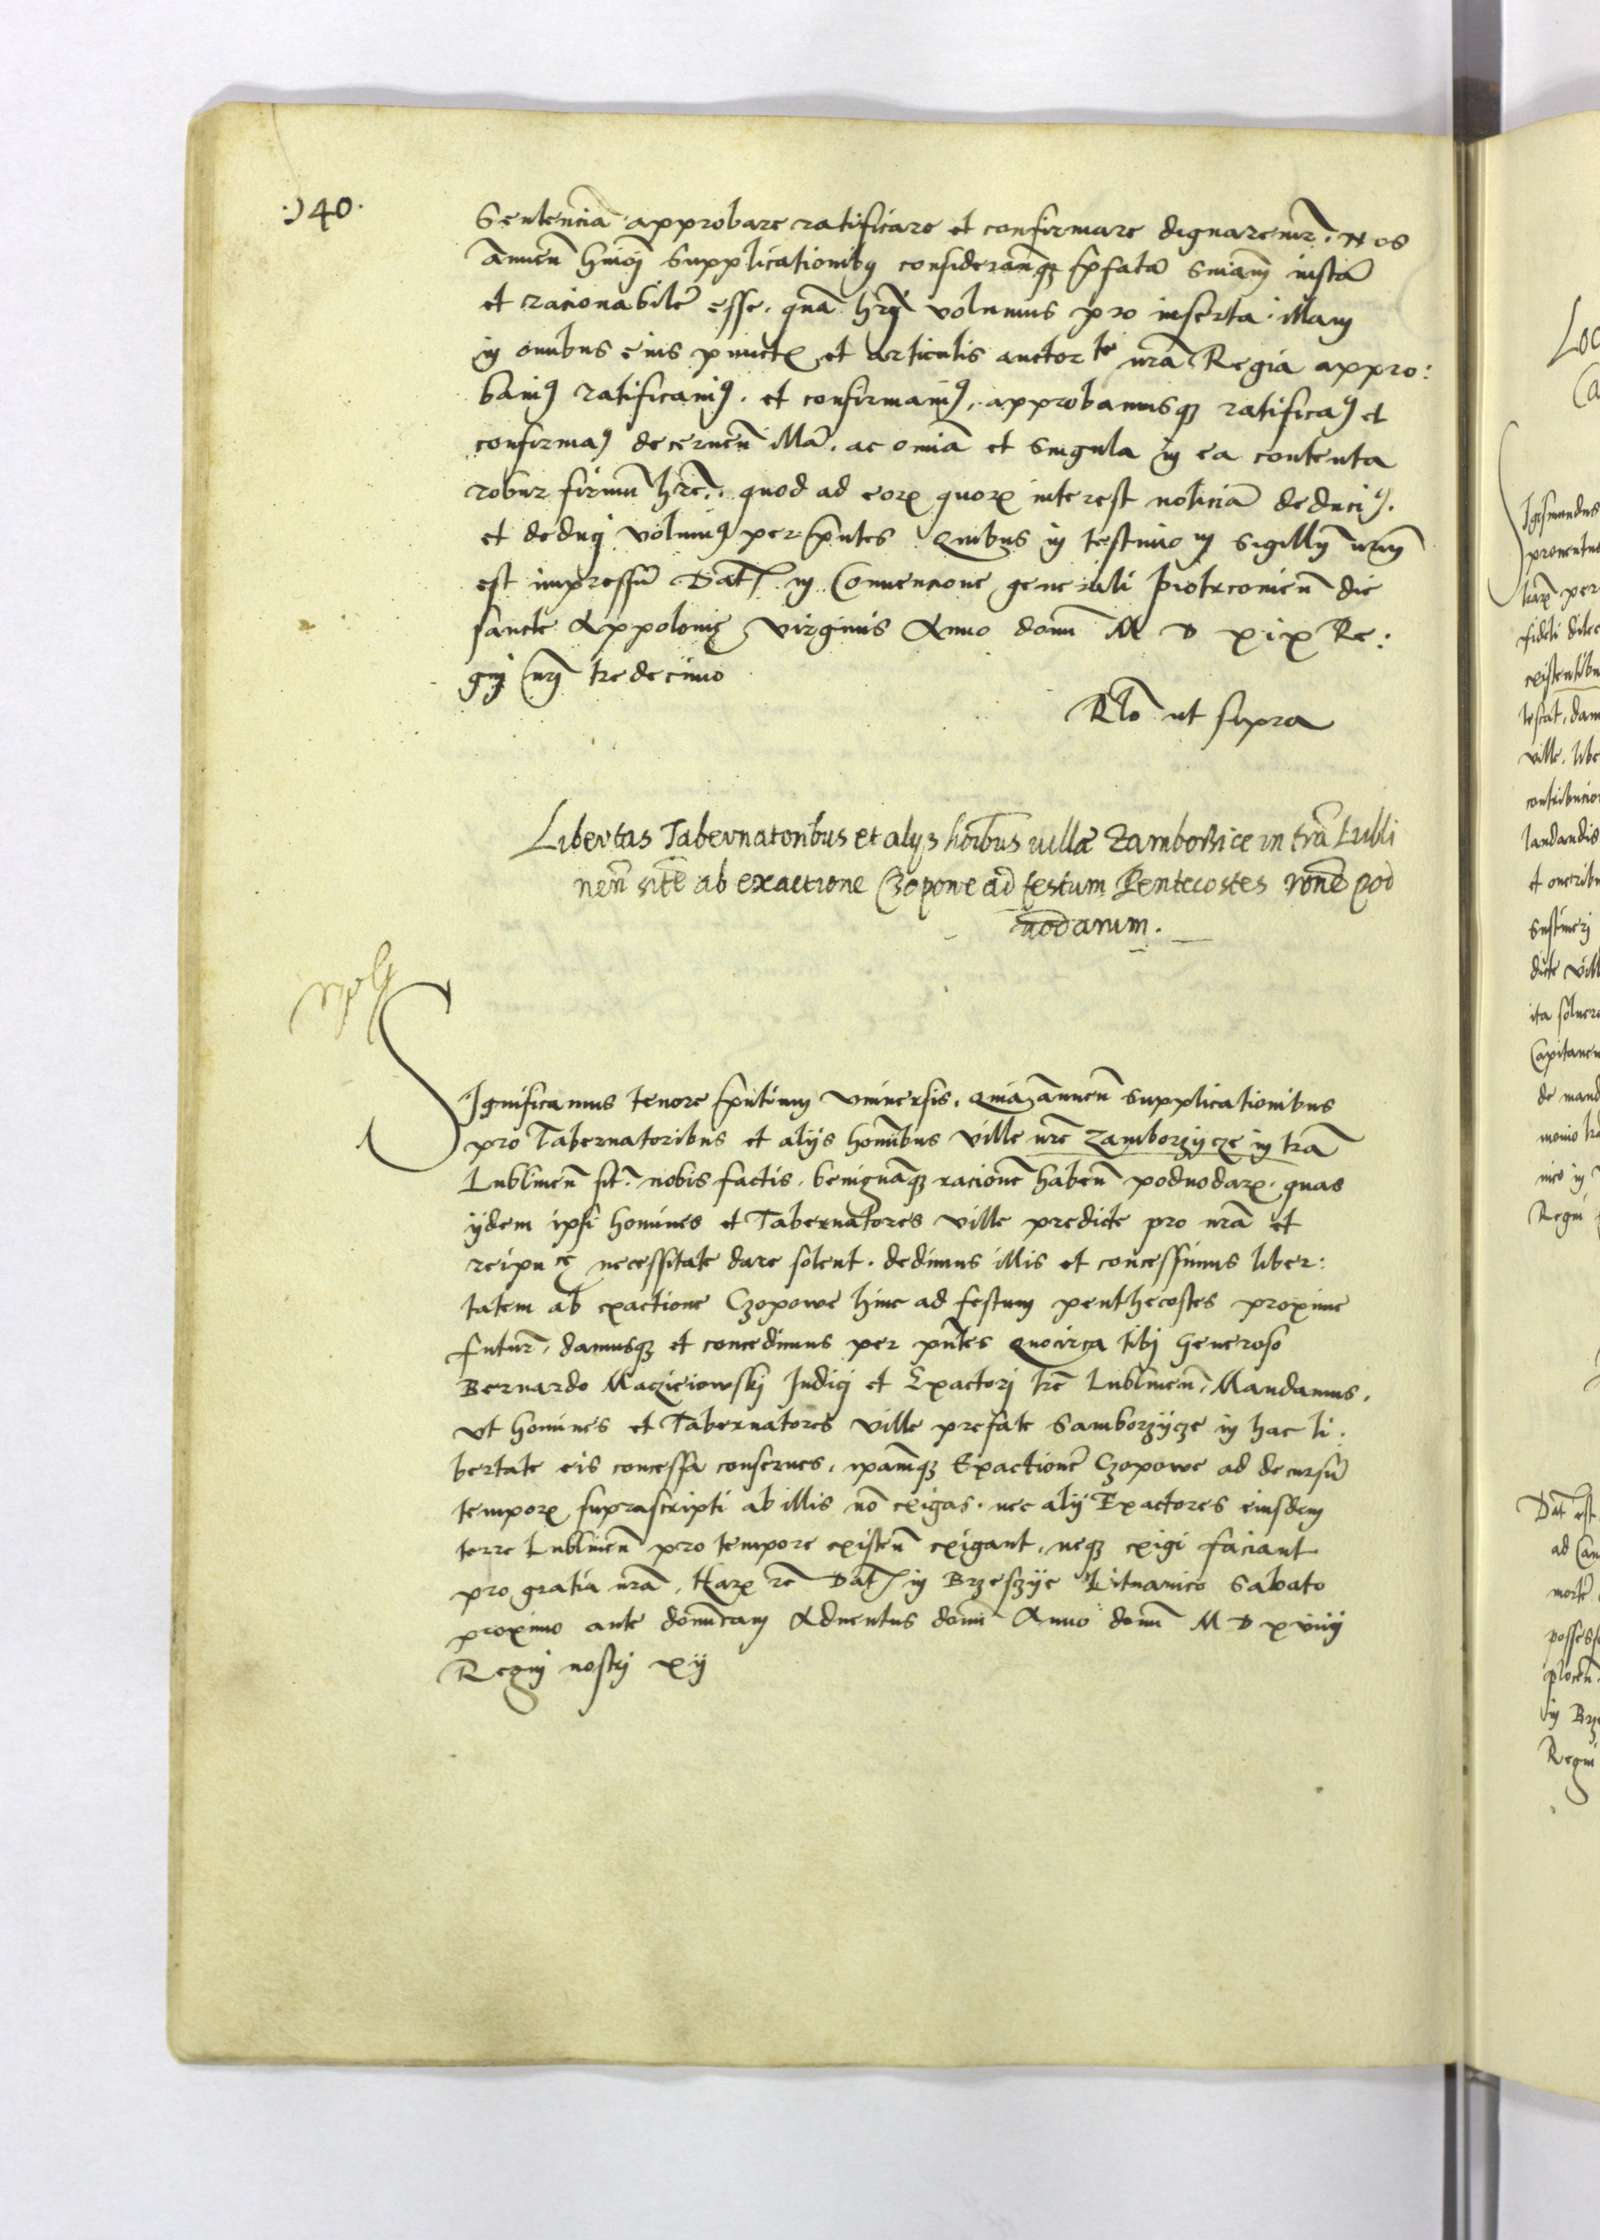 ·)40·
Sentenciā approbare ratificare et confirmare dignaremr̄. Nos
annuen̄ hmōj Supplicationibꝰ considerantesqꝫ p̄fatā sn̄iam iustā
et racionabilē esse. quā hr̄j volumus pro inserta. illam
in omnibus eius punctꝭ et articulis auctorte nrā Regia appro:
bamꝰ ratificamꝰ. et confirmamꝰ. approbamusqꝫ ratificaꝰ et
confirmaꝰ decernen̄ illā. ac omiā et singula in ea contenta
robur firmū hrē. quod ad eorꝝ quorꝝ interest noticiā deduciꝰ.
et deduci volumꝰ per p̄ntes Quibus in testimom Sigillū nrm̄
est impressū Datꝭ in Conuencione generali Piotrconien̄ die
sancte Appolonie virginis Anno domī M D xix Re:
gnj nrj̄ tredecimo
Rlō ut supra
Libertas Tabernatoribus et alijs hōibus villæ Zamborzice in trā Lubli
nen̄ sitē ab exactione Czopowe ad festum Pentecostes rōnē pod
uodarum.
SIgnificamus tenore p̄ntium vniuersis. Quia annuen̄ Supplicationibus
pro Tabernatoribus et alijs hominibus ville nrē Zamborzycze in trā
Lublinen̄ sit̄. nobis factis. benignāqꝫ racionē haben̄ poduodarꝝ. quas
ijdem ipsi homines et Tabernatores ville predicte pro nrā et
reipuce necessitate dare solent. dedimus illis et concessimus liber:
tatem ab exactione Czopowe hinc ad festum penthecostes proxime
futur̄. damusqꝫ et concedimus per pn̄tes Quocirca tibj Generoso
Bernardo Maczieiowskj Judicj et Exactorj trē Lublinen̄. Mandamus.
vt homines et Tabernatores ville prefate Samborzycze in hac li:
bertate eis concessa conserues. ipamqꝫ Exactionē Czopowe ad decursū
temporꝝ suprascripti ab illis nō exigas. nec alij Exactores eiusdem
terre Lublinen̄ pro tempore existen̄ exigant. neqꝫ exigi faciant
pro gratia nrā. Harꝝ rē Datꝭ in Brzesczye Lituanico Sabato
proximo ante domīcam Aduentus domī Anno domī M D xviij
Regnj nostrj xij